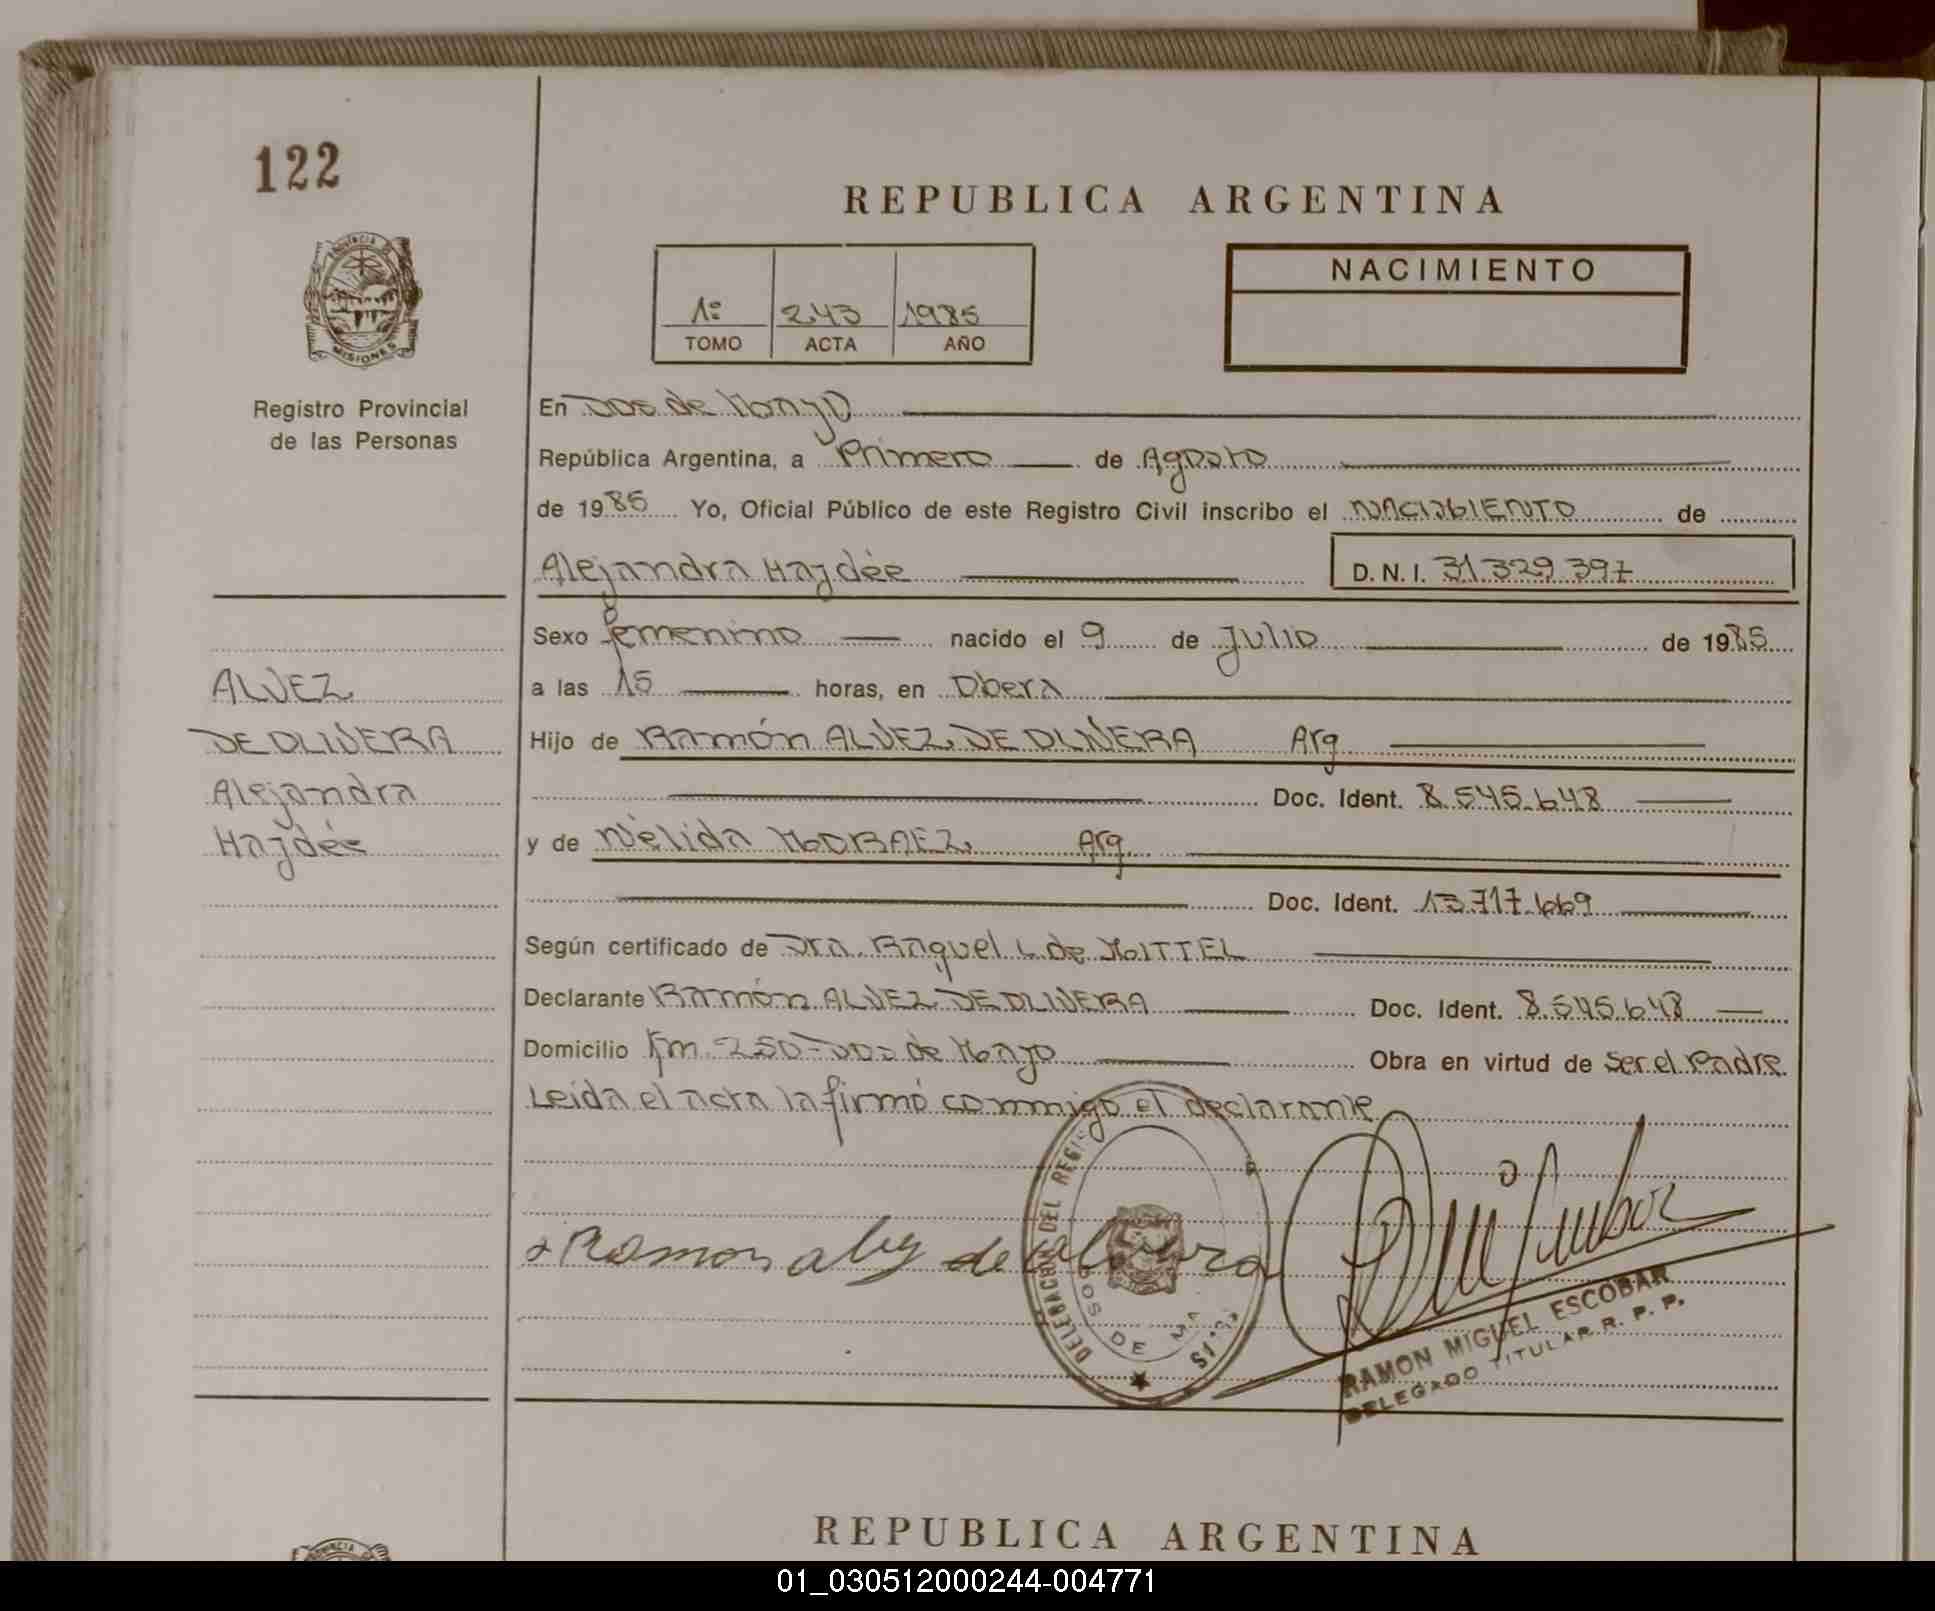 122
REPUBLICA ARGENTINA
NACIMIENTO
1º 243 1985
TOMO ACTA AÑO
PROVINCIA D
MISIONES
Registro Provincial
de las Personas
En Dos de Mayo
República Argentina, a Primero de Agosto
de 1985 Yo, Oficial Público de este Registro Civil inscribo el NACIMIENTO de
Alejandra Haydée D.N.I. 31.329.397
Sexo femenino nacido el 9 de Julio de 1985
a las 15 horas, en Oberá
Hijo de Ramón ALVEZ DE OLIVERA Arg
Doc. Ident. 8.545.648
y de Nélida MORAEZ Arg.
Doc. Ident. 13.717.669
Según certificado de Dra. Raquel L de MITTEL
Declarante Ramón ALVEZ DE OLIVERA Doc. Ident. 8.545.648
Domicilio Km. 250-Dos de Mayo Obra en virtud de Ser el Padre
Leida el acta la firmó conmigo el declarante
ALVEZ
DE OLIVERA
Alejandra
Haydée
Ramon alves de
DELEGACION DEL REGIS
DOS DE MA
RAMON MIGUEL ESCOBAR
DELEGADO TITULAR R. P. P.
REPUBLICA ARGENTINA
01_030512000244-004771